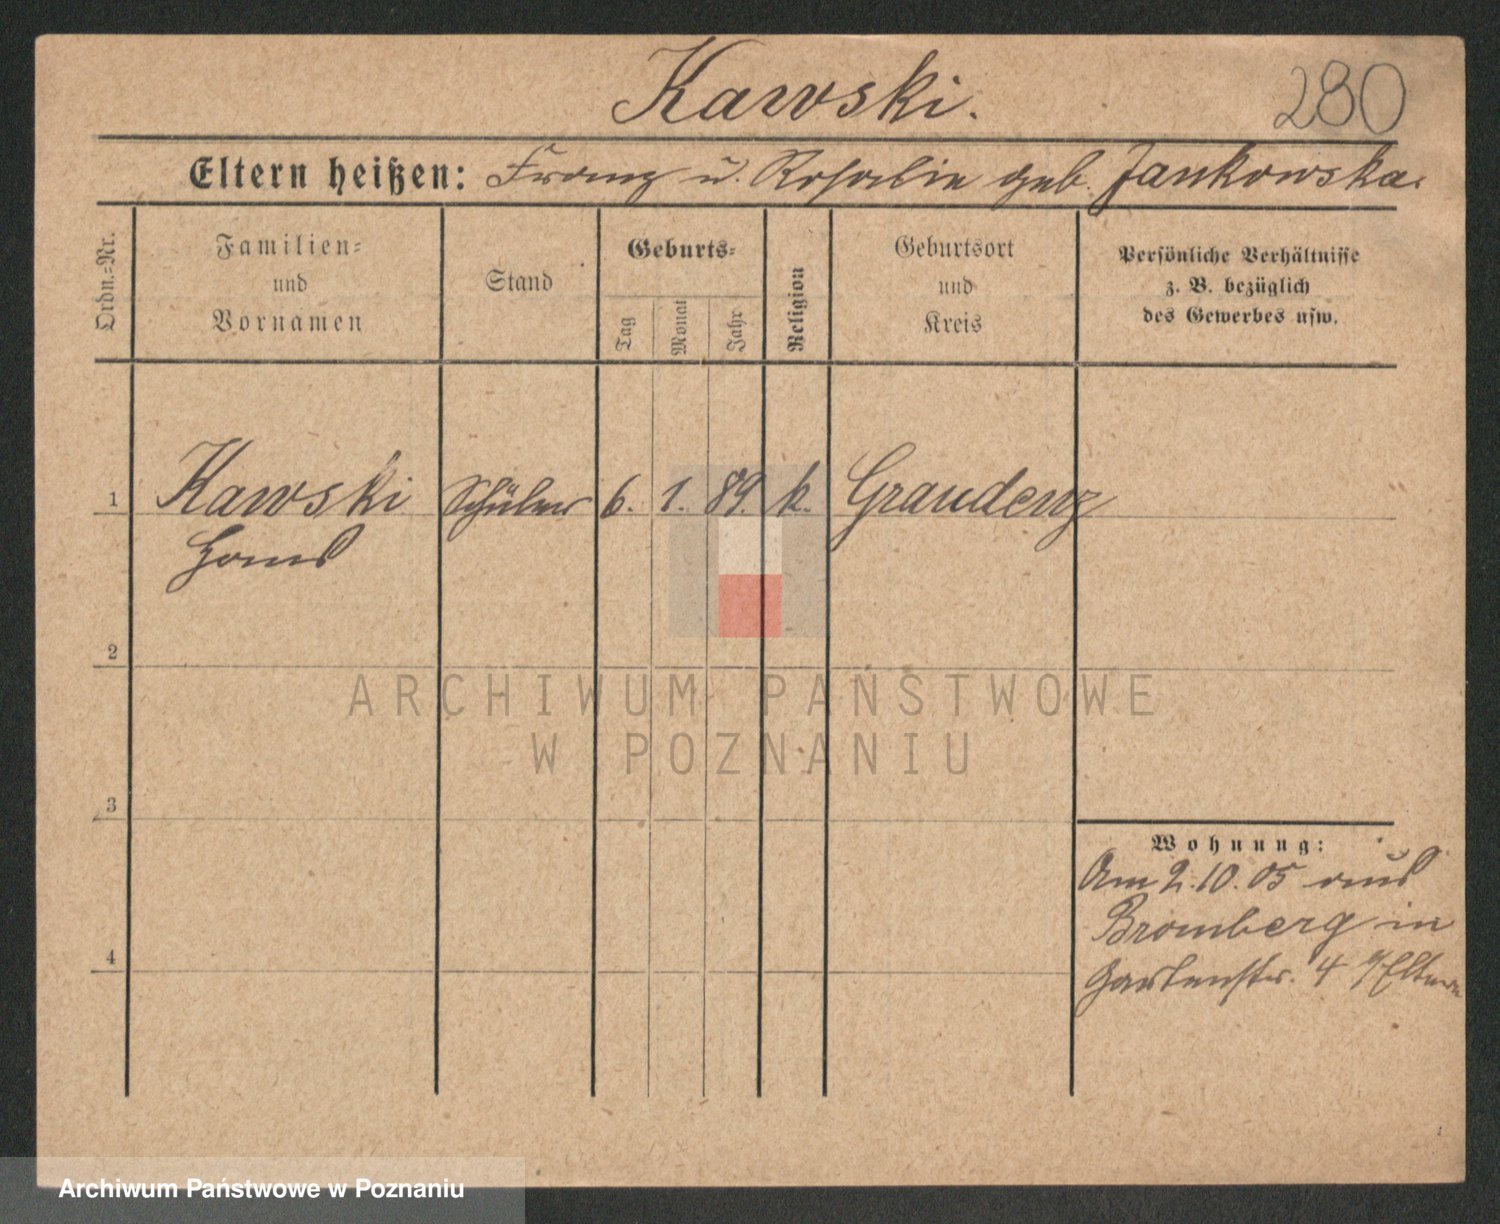 Kawski.
280
Eltern heißen: Franz u. Rosalie geb. Jankowska.
Ordn.=Nr.
Familien=
und
Vornamen
Stand
Geburts=
Tag
Monat
Jahr
Religion
Geburtsort
und
Kreis
Persönliche Verhältnisse
z. B. bezüglich
des Gewerbes usw.
1 Kawski Schüler 6. 1. 89. k. Graudenz
Hans
2
ARCHIWUM PAŃSTWOWE
W POZNANIU
3
Wohnung:
Am 2.10.05 aus
Bromberg in
4
Gartenstr. 4 Eltern
Archiwum Państwowe w Poznaniu